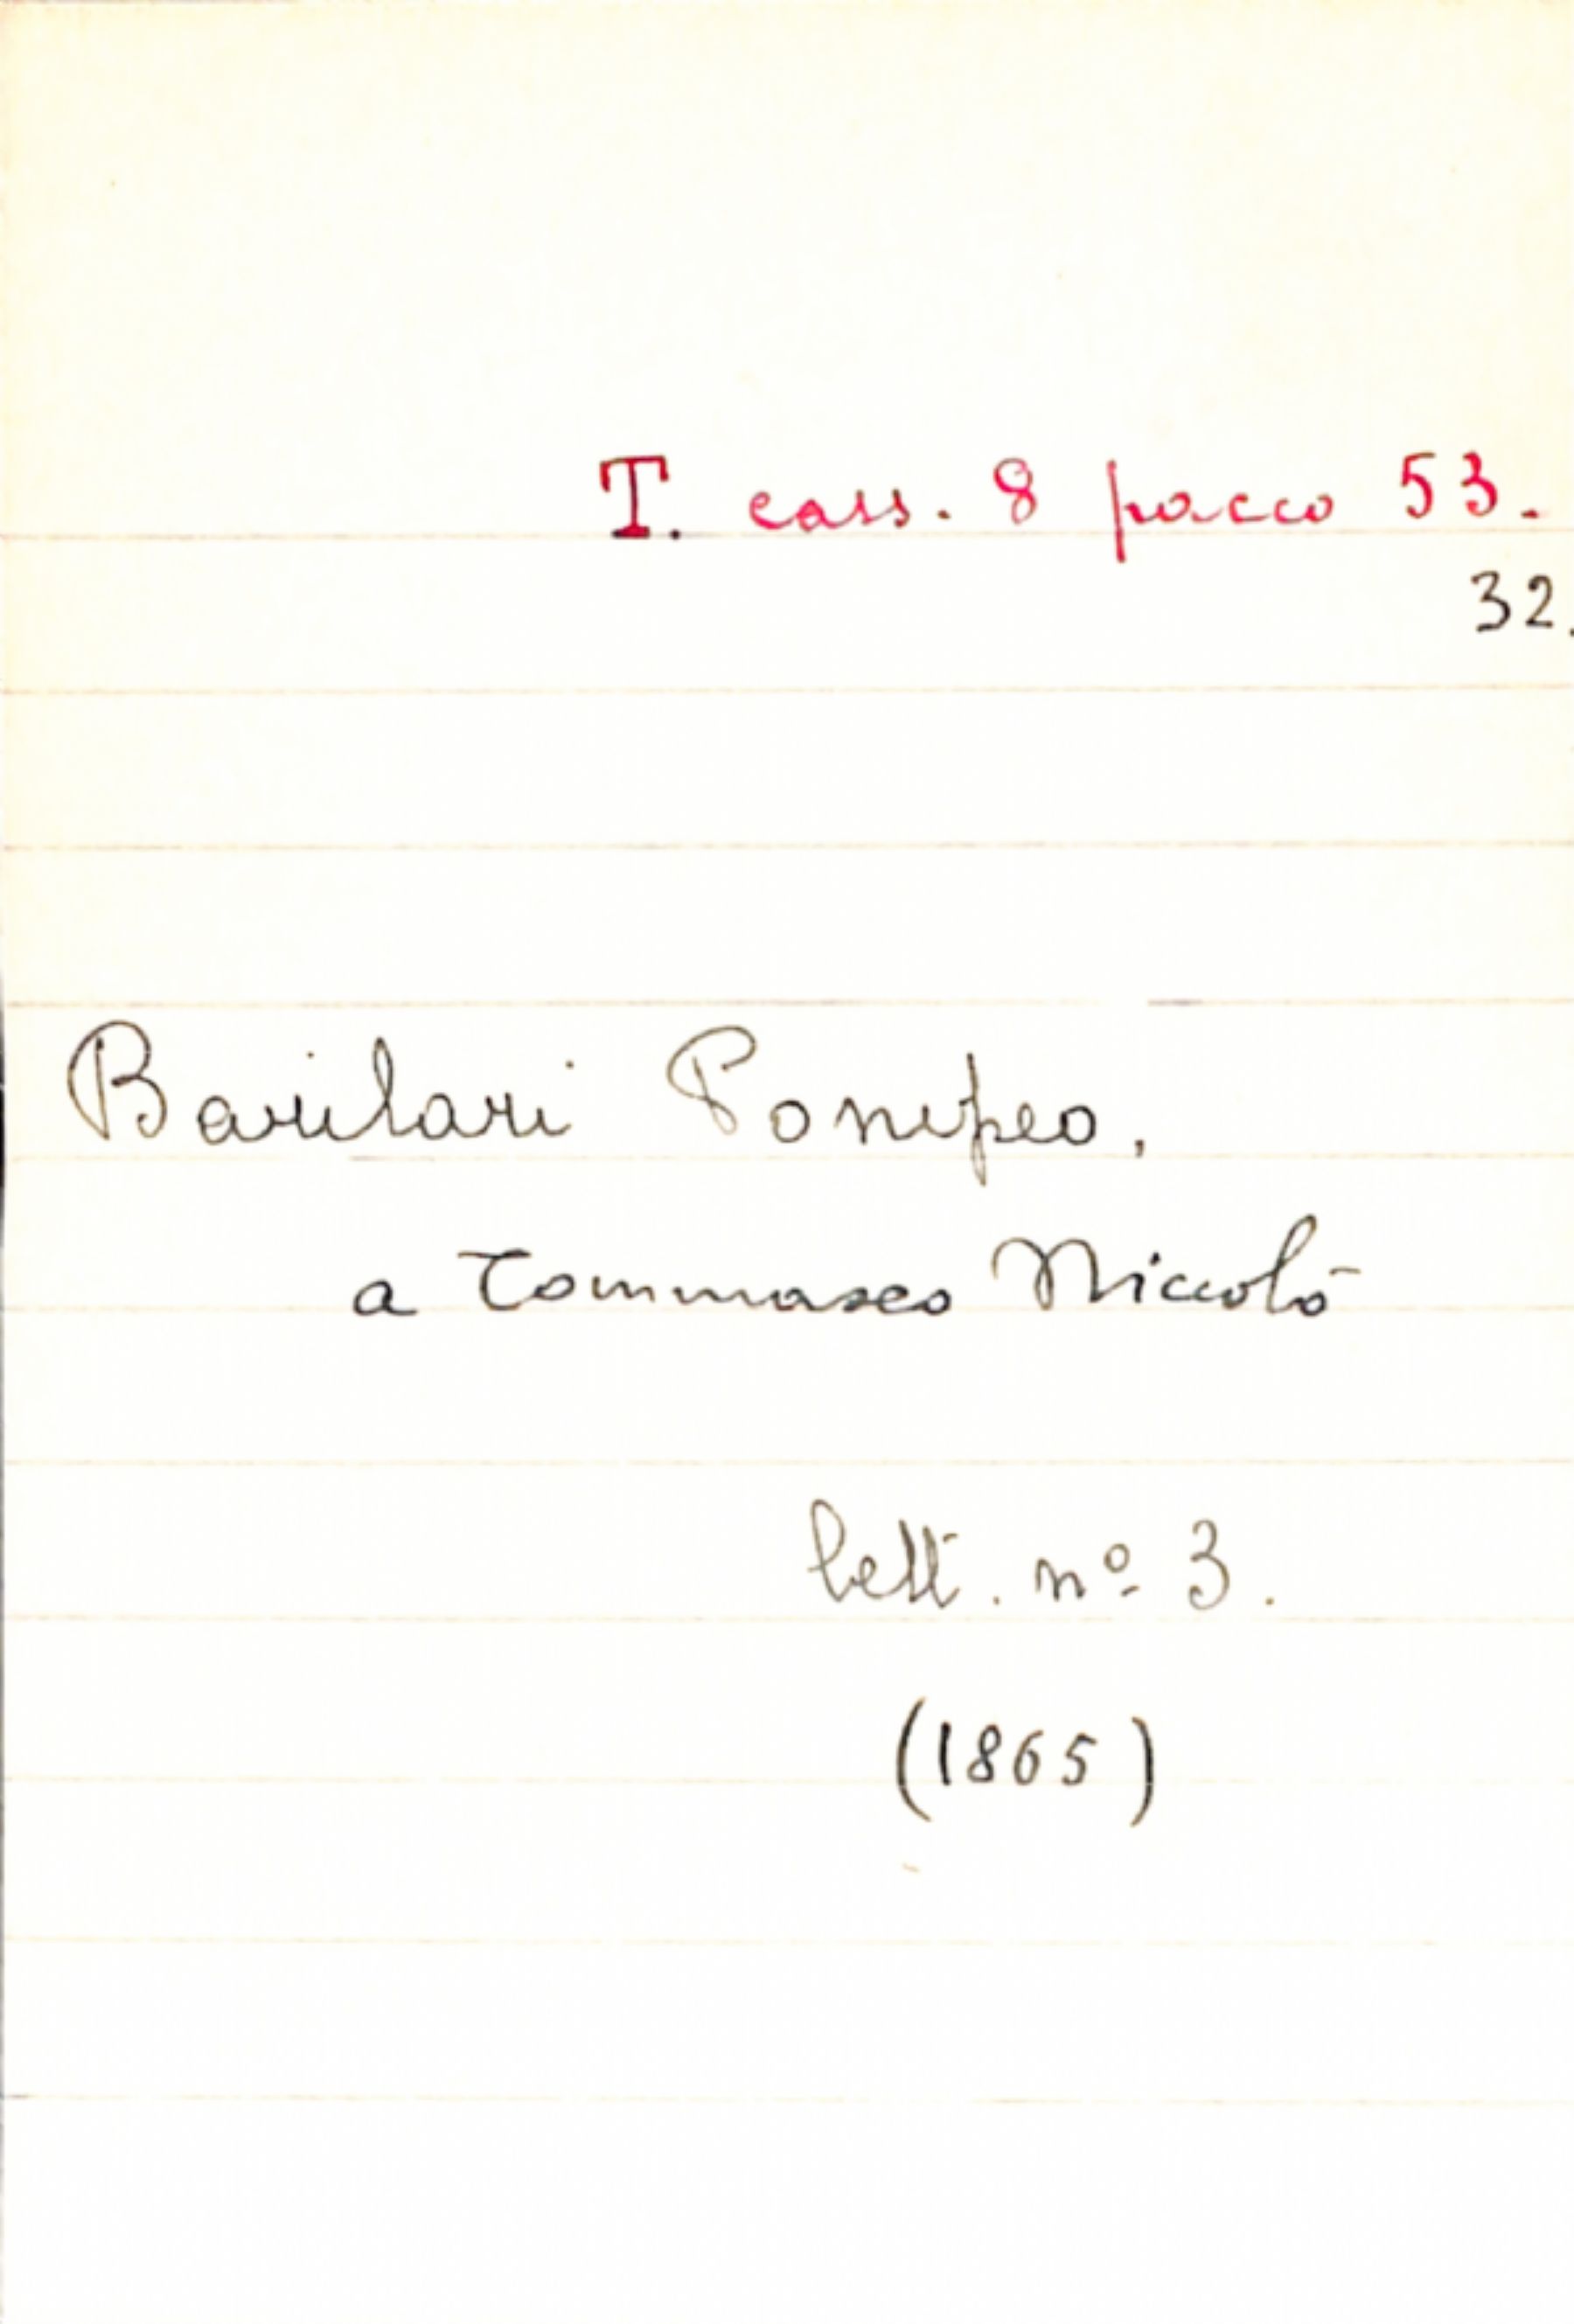 T. cass. 8 pacco 53.
32.
Barilari Pompeo,
a Tommaseo Niccolò
lett. nº 3.
(1865)